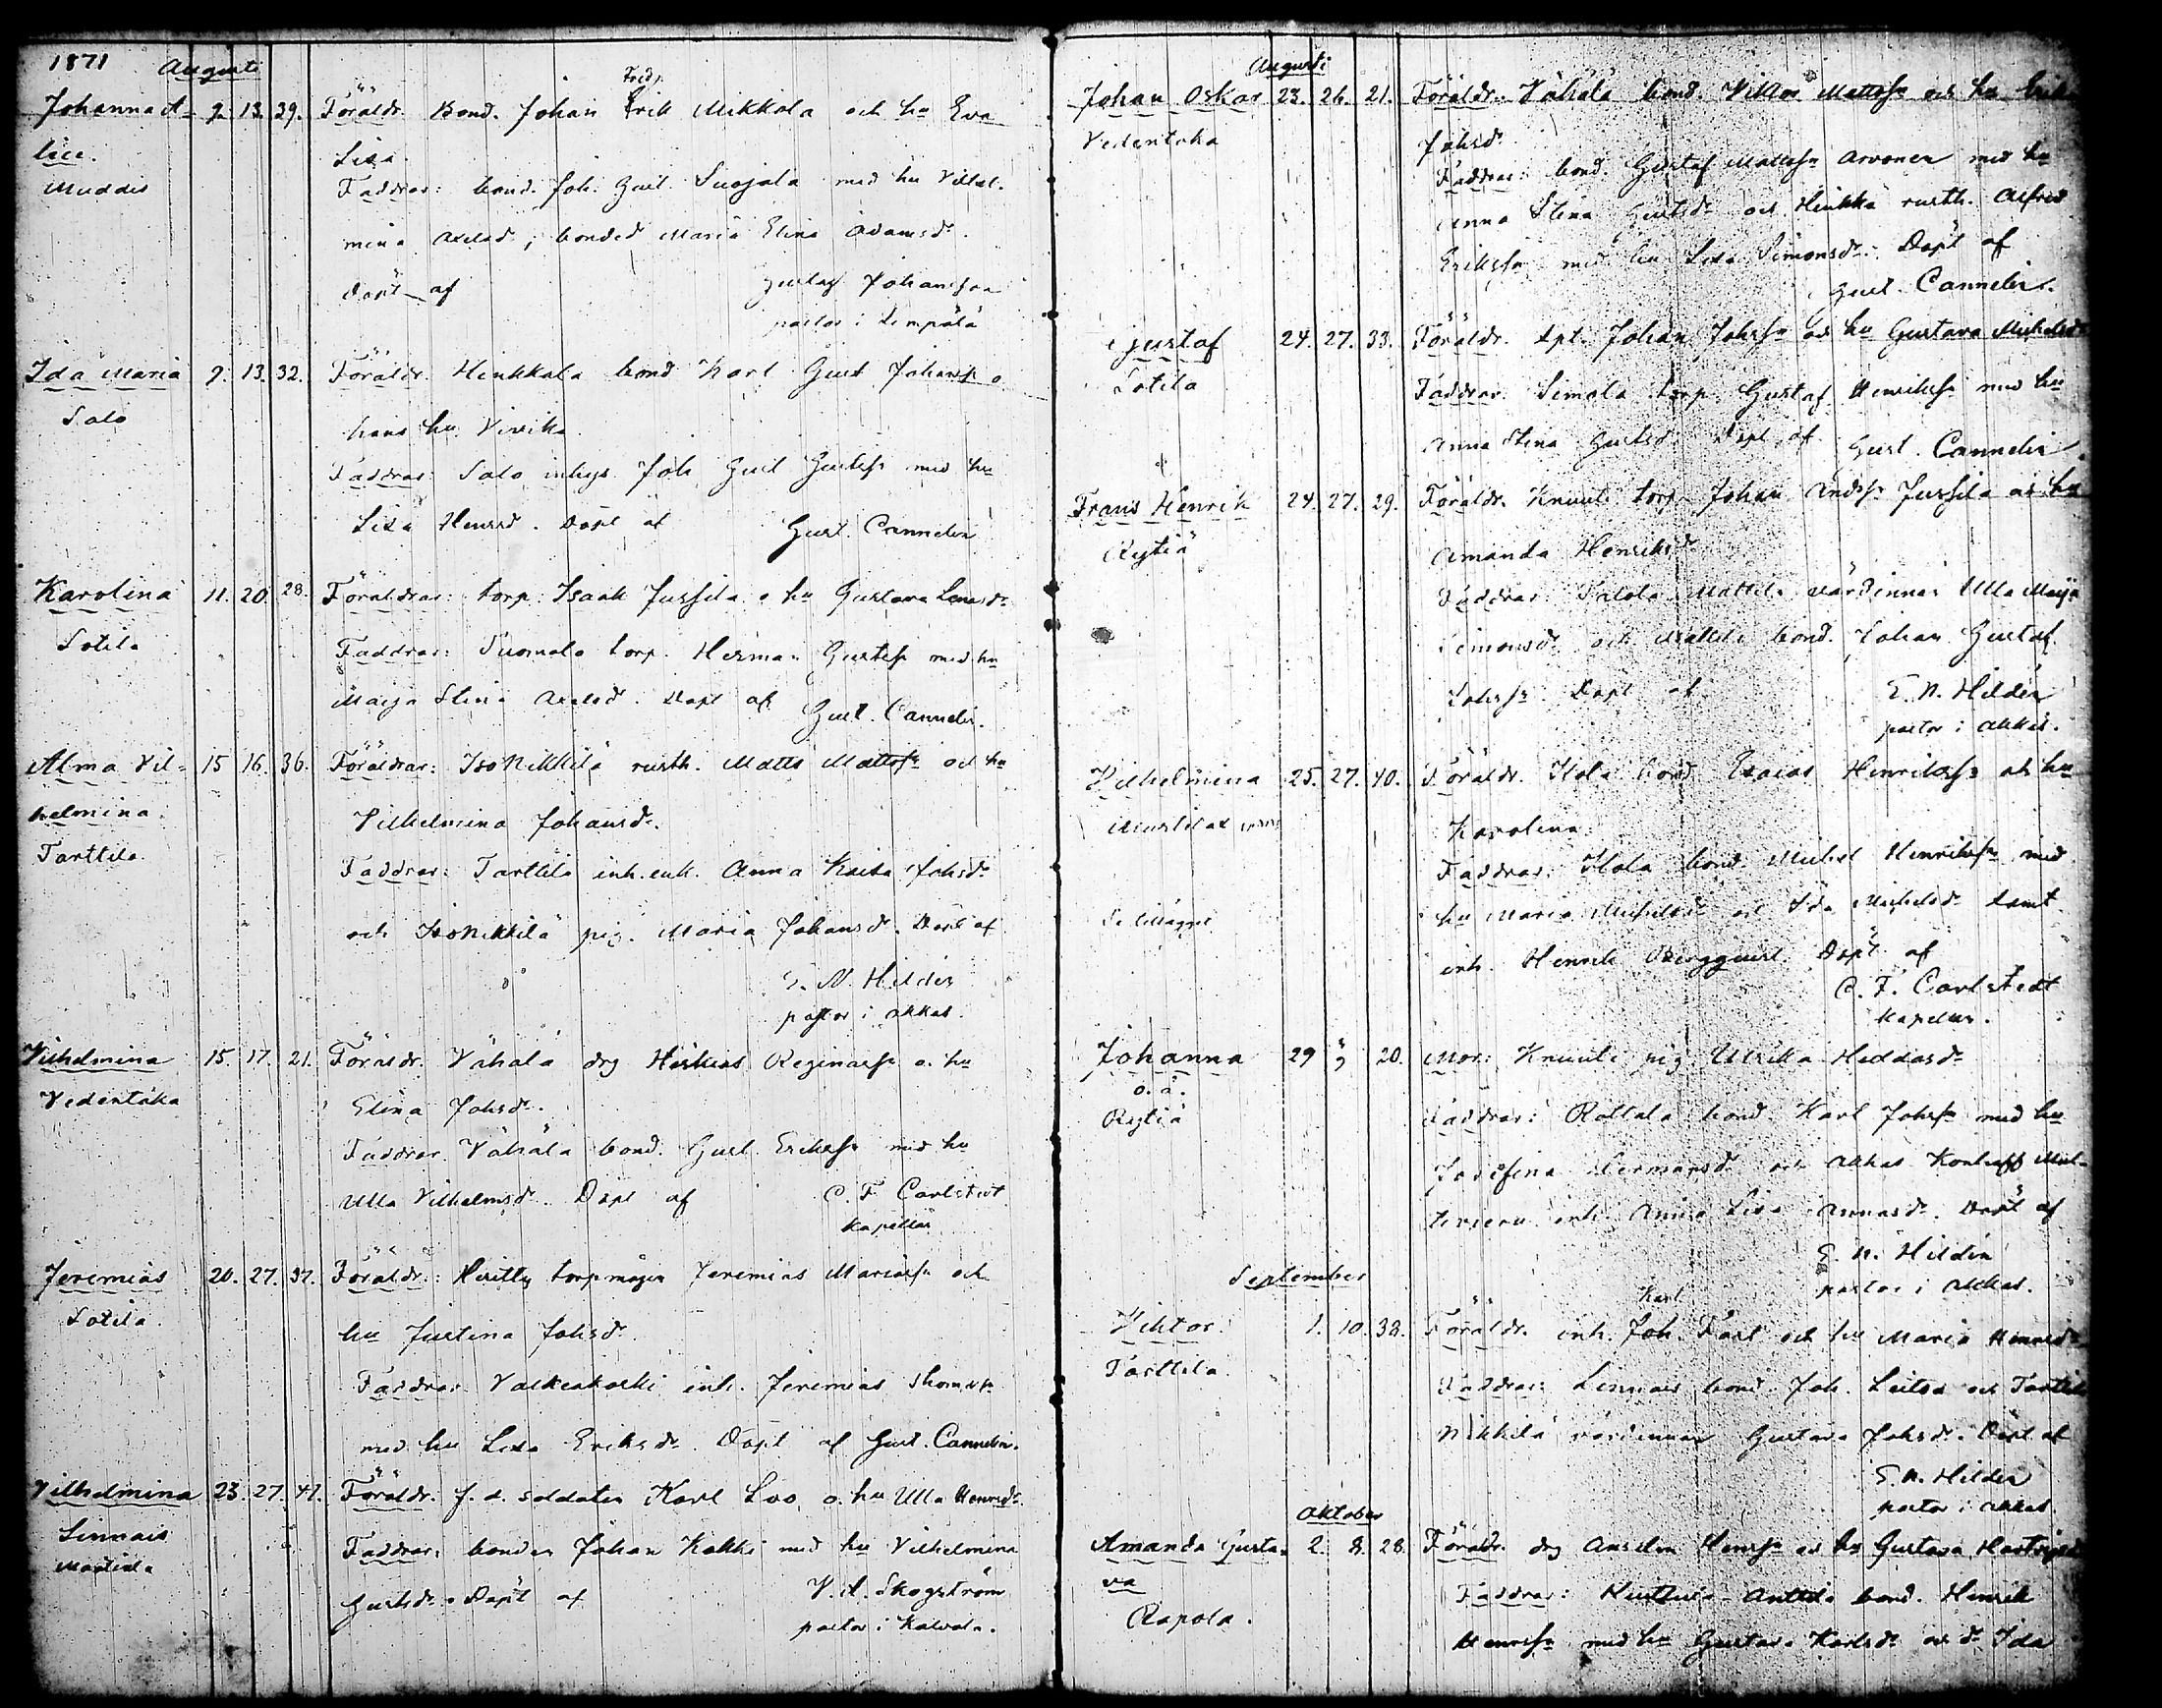 1871 Augusti
Johanna A- 9. 13. 39. Föräldr. Bond. Johan Erik Fredr. Mikkola och hu Eva
lice. Lisa.
Muddis Faddrar: bond. Joh. Gust. Suojala med hu Vilhel-
mina Axelsd., bonded. Maria Elina Adamsd.
Döpt af Gustaf Johansson
pastor i Lempälä
Ida Maria 9. 13. 32. Föräldr. Heikkala bond Karl Gust Johansso o
Salo hans hu Vivika.
Faddrar: Salo inhys. Joh Gust Gustfsn med hu
Lisa Henrsd. Döpt af Gust. Cannelin
Karolina 11. 20. 28. Föräldrar: torp. Isaak Jussila o hu Gustava Lenasdr
Sotila Faddrar: Suomala torp. Herman Gustfsn med hu
Maija Stina Axelsd. Döpt af Gust. Cannelin.
Alma Vil- 15 16. 36. Föräldrar: IsoNikkilä rusth. Matts Mattsn och hu
helmina. Vilhelmina Johansdr.
Tarttila. Faddrar: Tarttila inh. enk. Anna Kaisa Johsdr
och IsoNikkilä pig. Maria Johansd. Döpt af
E. N. Hildén
pastor i Akkas.
Vilhelmina 15. 17. 21. Föräldr. Vähälä drg Heskias Reginasn o. hu
Vedentaka Elina Johsdr.
Faddrar. Vähälä bond. Gust. Eriksn med hu
Ulla Vilhelmsd. Döpt af C. F. Carlstedt
kapellan
Jeremias 20. 27. 37. Föräldr.: torpmågen Jeremias Mariasn och
Sotila. hu Justina Johsdr.
Faddrar. Valkeakoski inh. Jeremias Thomasn
med hu Lisa Eriksdr. Döpt af Gust. Cannelin.
Vilhelmina 23. 27. 41. Föräldr. f.d. soldaten Karl Loo, o. hu Ulla Henrsdr.
Linnais Faddrar: bonden Johan Kakki med hu Vilhelmina
Mattila Gustsdr. Döpt af V. A. Skogström
pastor i Kalvola.
Augusti
Johan Oskar 23. 26. 21. Föräldr.: Vähälä bond. Viktor Mattsn och hu Erika
Vedentaka Johsd.
Faddrar: bond. Gustaf Mattsn Arvonen med hu
Anna Stina Gustsdr och Heikkä rusth. Alfred
Eriksn med hu Lisa Simonsdr. Döpt af
Gust. Cannelin.
Gustaf 24. 27. 33. Föräldr. Johan Johsn och hu Gustava Michelsdr
Sotila Faddrar. Simola torp. Gustaf Henriksn med hu
Anna Stina Gustsd. Döpt af Gust. Cannelin.
Frans Henrik 24. 27. 29. Föräldr. Knuuti torp. Johan Andsn Jussila och hu
Rytiä Amanda Henriksdr
Faddrar Mattila värdinnan Ulla Maija
Simonsd. och Mattila bond. Johan Gustaf
Johsn. Döpt af E. N. Hildén
pastor i Akkas.
Vilhelmina 25. 27. 40. Föräldr. Yola bond Esaias Henriksn och hu
Karolina.
Faddrar. Yola bond. Michel Henriksn med
Se tillägget hu Maria Michelsdr och Ida Michelsdr samt
inh. Henrik Bergqvist. Döpt af
C. F. Carlstedt
kapellan.
Johanna 29 " 20. Mor: Knuuti pig Ulrika Heddasdr
o. ä. Faddrar: Rottala bond. Karl Johsn med hu
Rytiä Josefina Hermansd. och Akkas
inh. Anna Lisa Annasdr. Döpt af
E. N. Hildén
pastor i Akkas.
September
Viktor. 1. 10. 32. Föräldr. inh. Joh. Karl och hu Maria Henrsdr
Tarttila. Faddrar: Linnais bond. Joh. och Tarttila
Nikkilä värdinnan Gustava Johsdr. Döpt af
E. N. Hildén
pastor i Akkas
Oktober
Amanda Gusta- 2. 8. 28. Föräldr. drg Anselm Henrsn och hu Gustava
va Faddrar: Anttila bond. Henrik
Rapola. Henrsn med hu Gustava Karlsdr och dr Ida